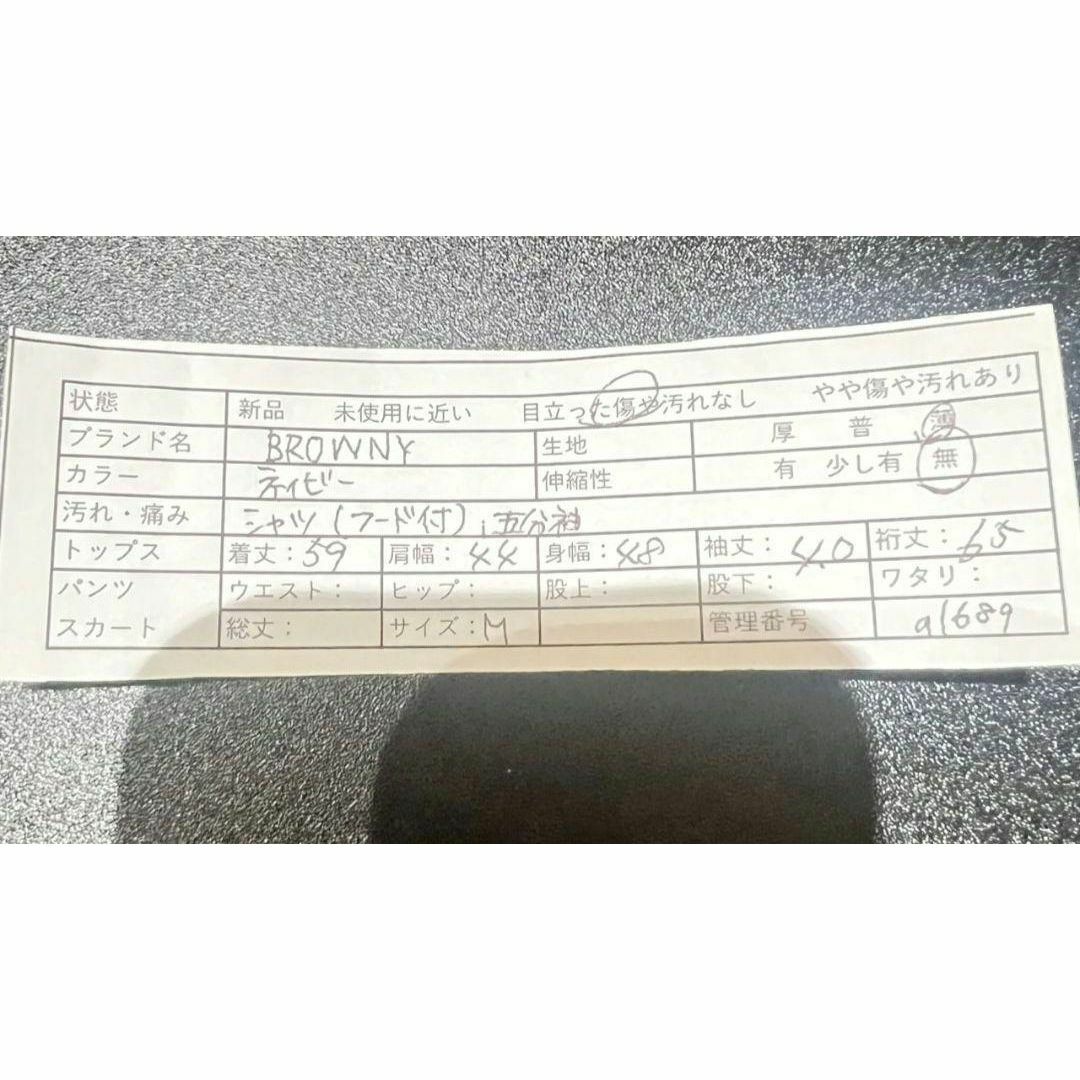 状態 新品 未使用に近い 目立った傷や汚れなし やや傷や汚れあり
ブランド名 BROWNY 生地 厚 普 薄
カラー ネイビー 伸縮性 有 少し有 無
汚れ・痛み シャツ(フード付) 五分袖
トップス 着丈:59 肩幅:44 身幅:48 袖丈:40 裄丈:65
パンツ ウエスト: ヒップ: 股上: 股下: ワタリ:
スカート 総丈: サイズ:M 管理番号 a1689